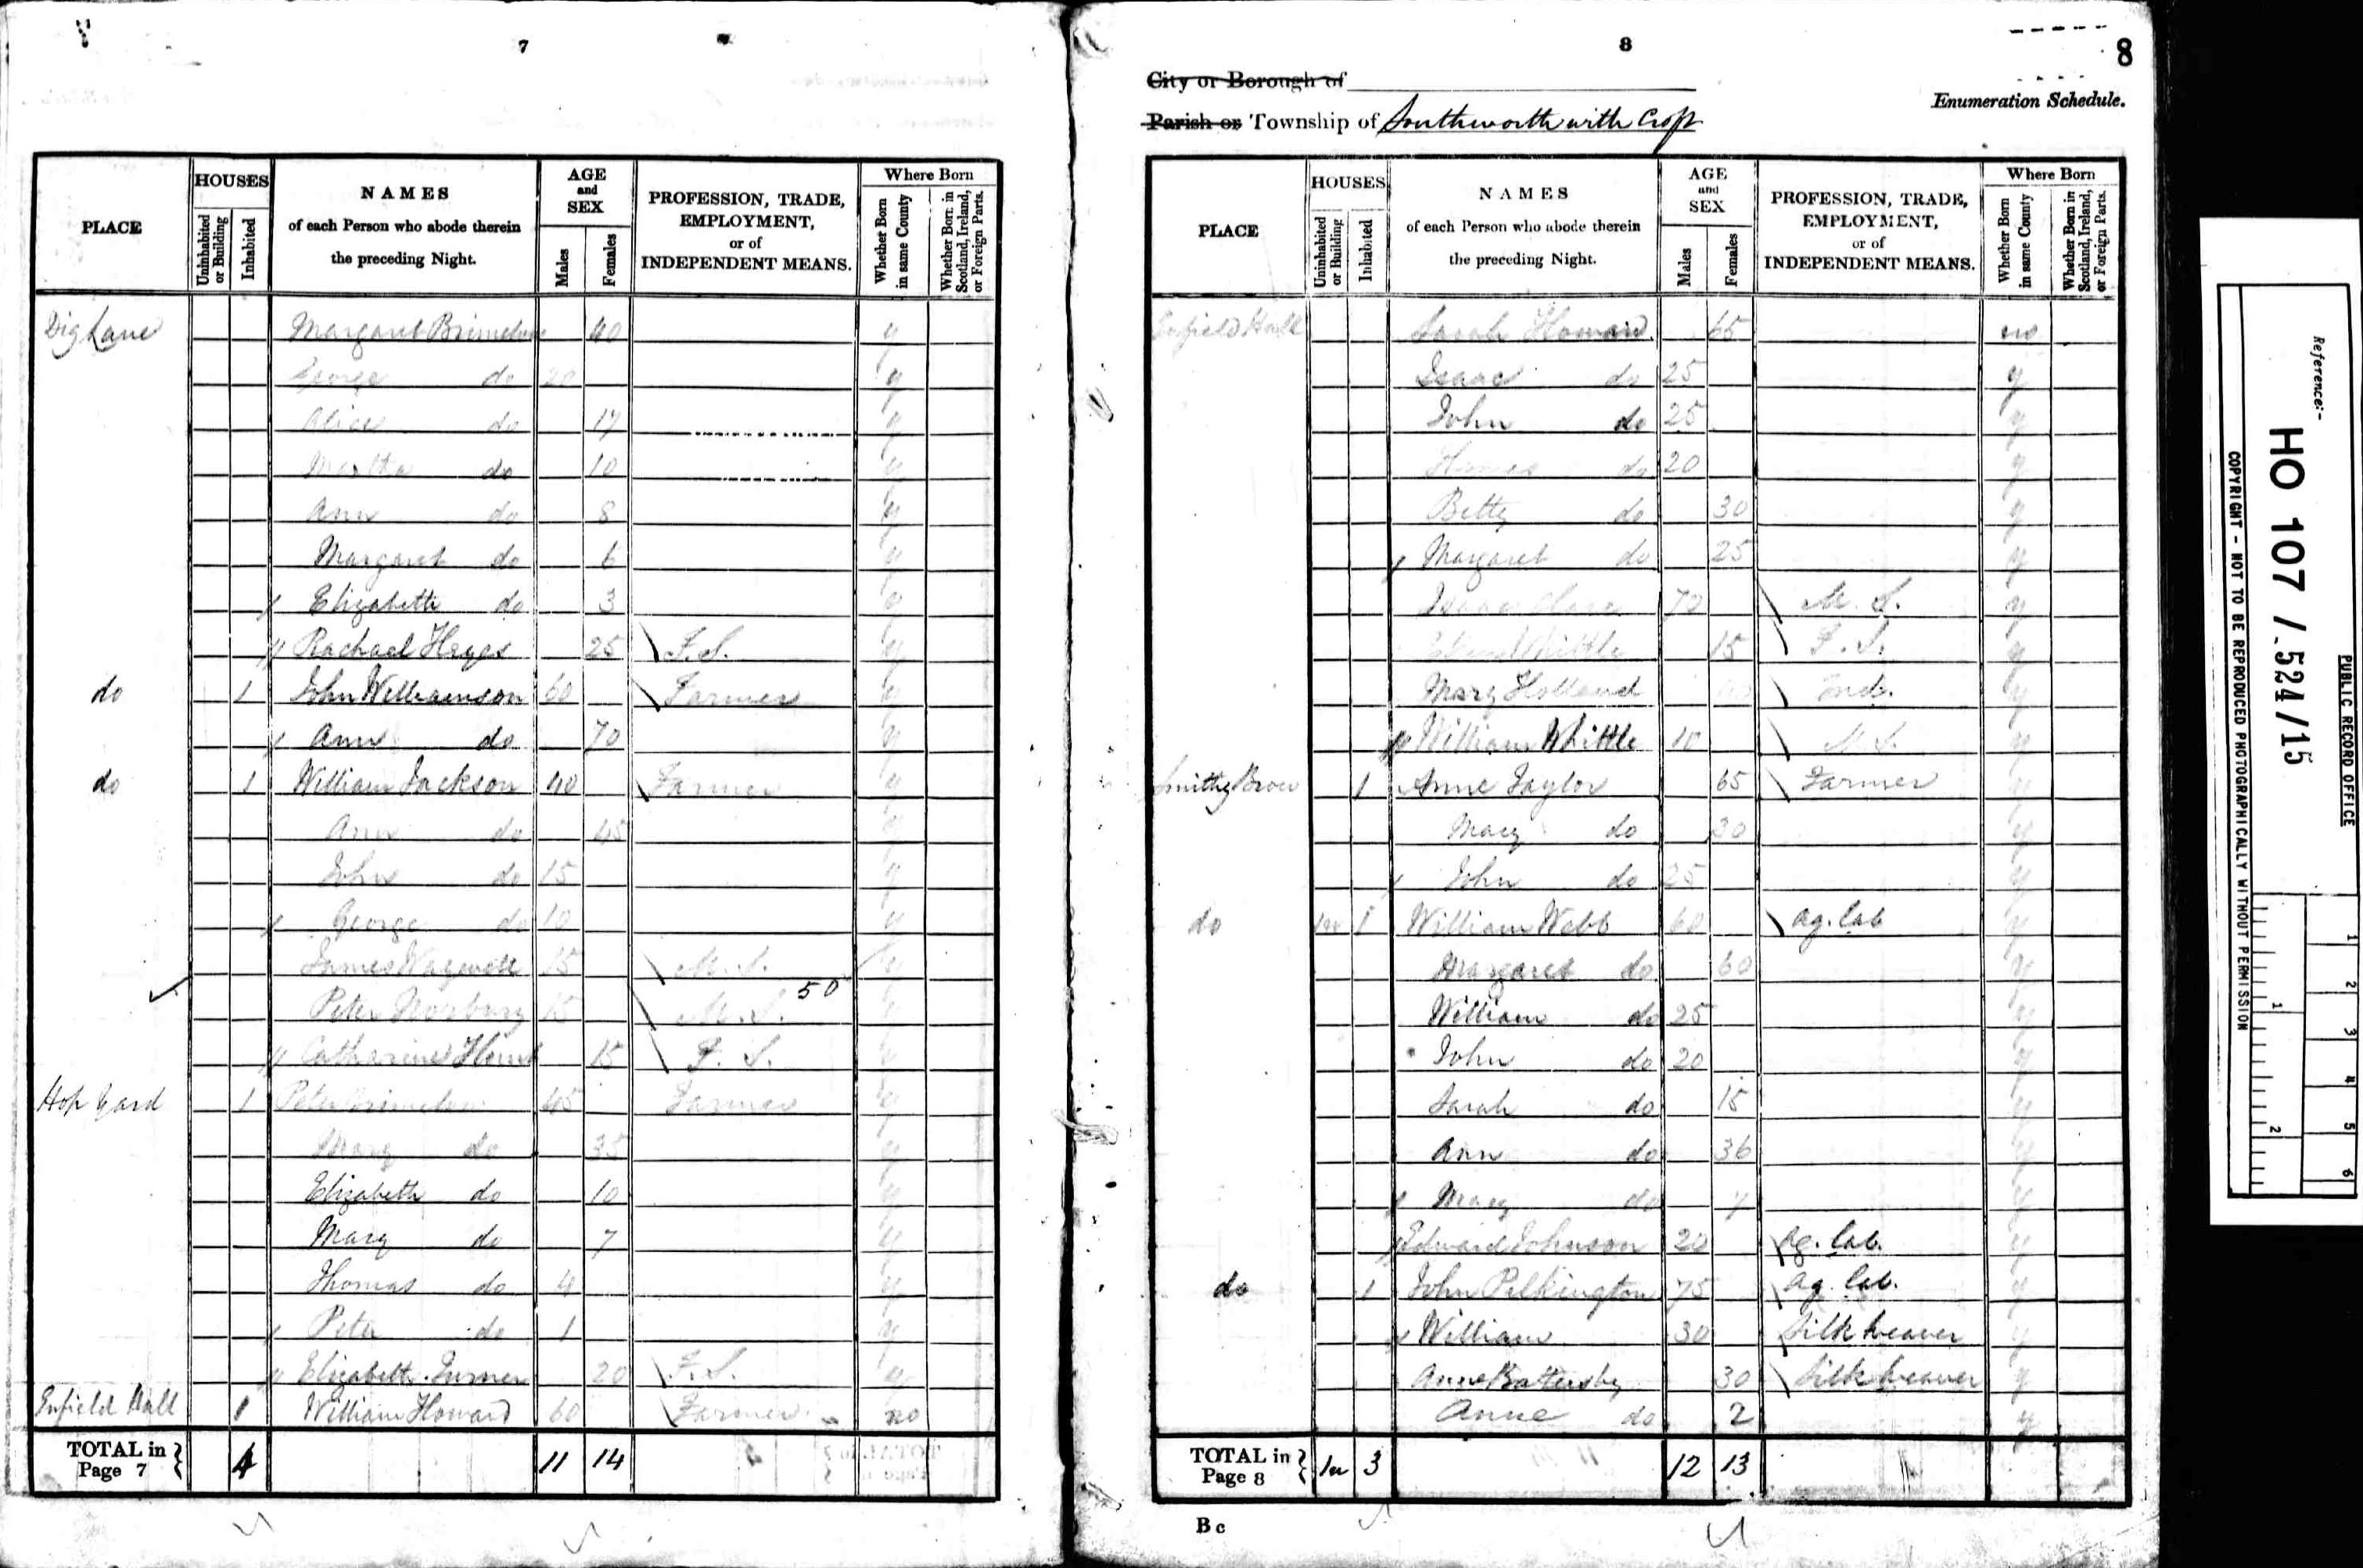 7
PLACE
HOUSES
Uninhabited or Building
Inhabited
NAMES
of each Person who abode therein
the preceding Night.
AGE
and
SEX
Males
Females
PROFESSION, TRADE,
EMPLOYMENT,
or of
INDEPENDENT MEANS.
Where Born
Whether Born in same County
Whether Born in Scotland, Ireland, or Foreign Parts.
Dig Lane Margaret Brimelow 40 y
George do 20 y
Alice do 17 y
Martha do 10 y
Ann do 8 y
Margaret do 6 y
Elizabeth do 3 y
Rachael Hayes 25 F.S. y
do 1 John Williamson 60 Farmer y
Ann do 70 y
do 1 William Jackson 40 Farmer y
Ann do 45 y
John do 15 y
George do 10 y
James 15 M.S. y
50
Peter 15 M.S. y
Catharine 15 F.S. y
Hop Yard 1 Peter Brimelow 45 Farmer y
Mary do 35 y
Elizabeth do 10 y
Mary do 7 y
Thomas do 4 y
Peter do 1 y
Elizabeth Turner 20 F.S. y
Enfield Hall 1 William Howard 60 Farmer no
TOTAL in Page 7 4 11 14
8
8
City or Borough of
Enumeration Schedule.
Parish or Township of Southworth with Croft
PLACE
HOUSES
Uninhabited or Building
Inhabited
NAMES
of each Person who abode therein
the preceding Night.
AGE
and
SEX
Males
Females
PROFESSION, TRADE,
EMPLOYMENT,
or of
INDEPENDENT MEANS.
Where Born
Whether Born in same County
Whether Born in Scotland, Ireland, or Foreign Parts.
Enfield Hall Sarah Howard 65 no
Isaac do 25 y
John do 25 y
do 20 y
Betty do 30 y
Margaret do 25 y
Isaac 70 M.S. y
Whittle 15 F.S. y
Mary Holland Ind. y
William Whittle 10 M.S. y
Smithy Brow 1 Anne Taylor 65 Farmer y
Mary do 30 y
John do 25 y
do 1u 1 William Webb 60 Ag. Lab y
Margaret do 60 y
William do 25 y
John do 20 y
Sarah do 15 y
Ann do 36 y
Mary do 7 y
Edward Johnson 20 Ag. Lab. y
do 1 John Pilkington 75 Ag. Lab. y
William 30 Silk Weaver y
Anne Battersby 30 Silk Weaver y
Anne do 2 y
TOTAL in Page 8 1u 3 12 13
Bc
Reference:-
HO 107 / 524/15
PUBLIC RECORD OFFICE
COPYRIGHT - NOT TO BE REPRODUCED PHOTOGRAPHICALLY WITHOUT PERMISSION
1
2
1 2 3 4 5 6